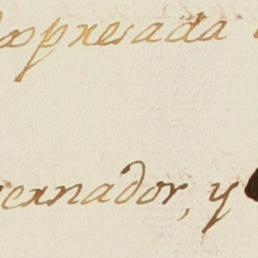 expresada
ernador, y